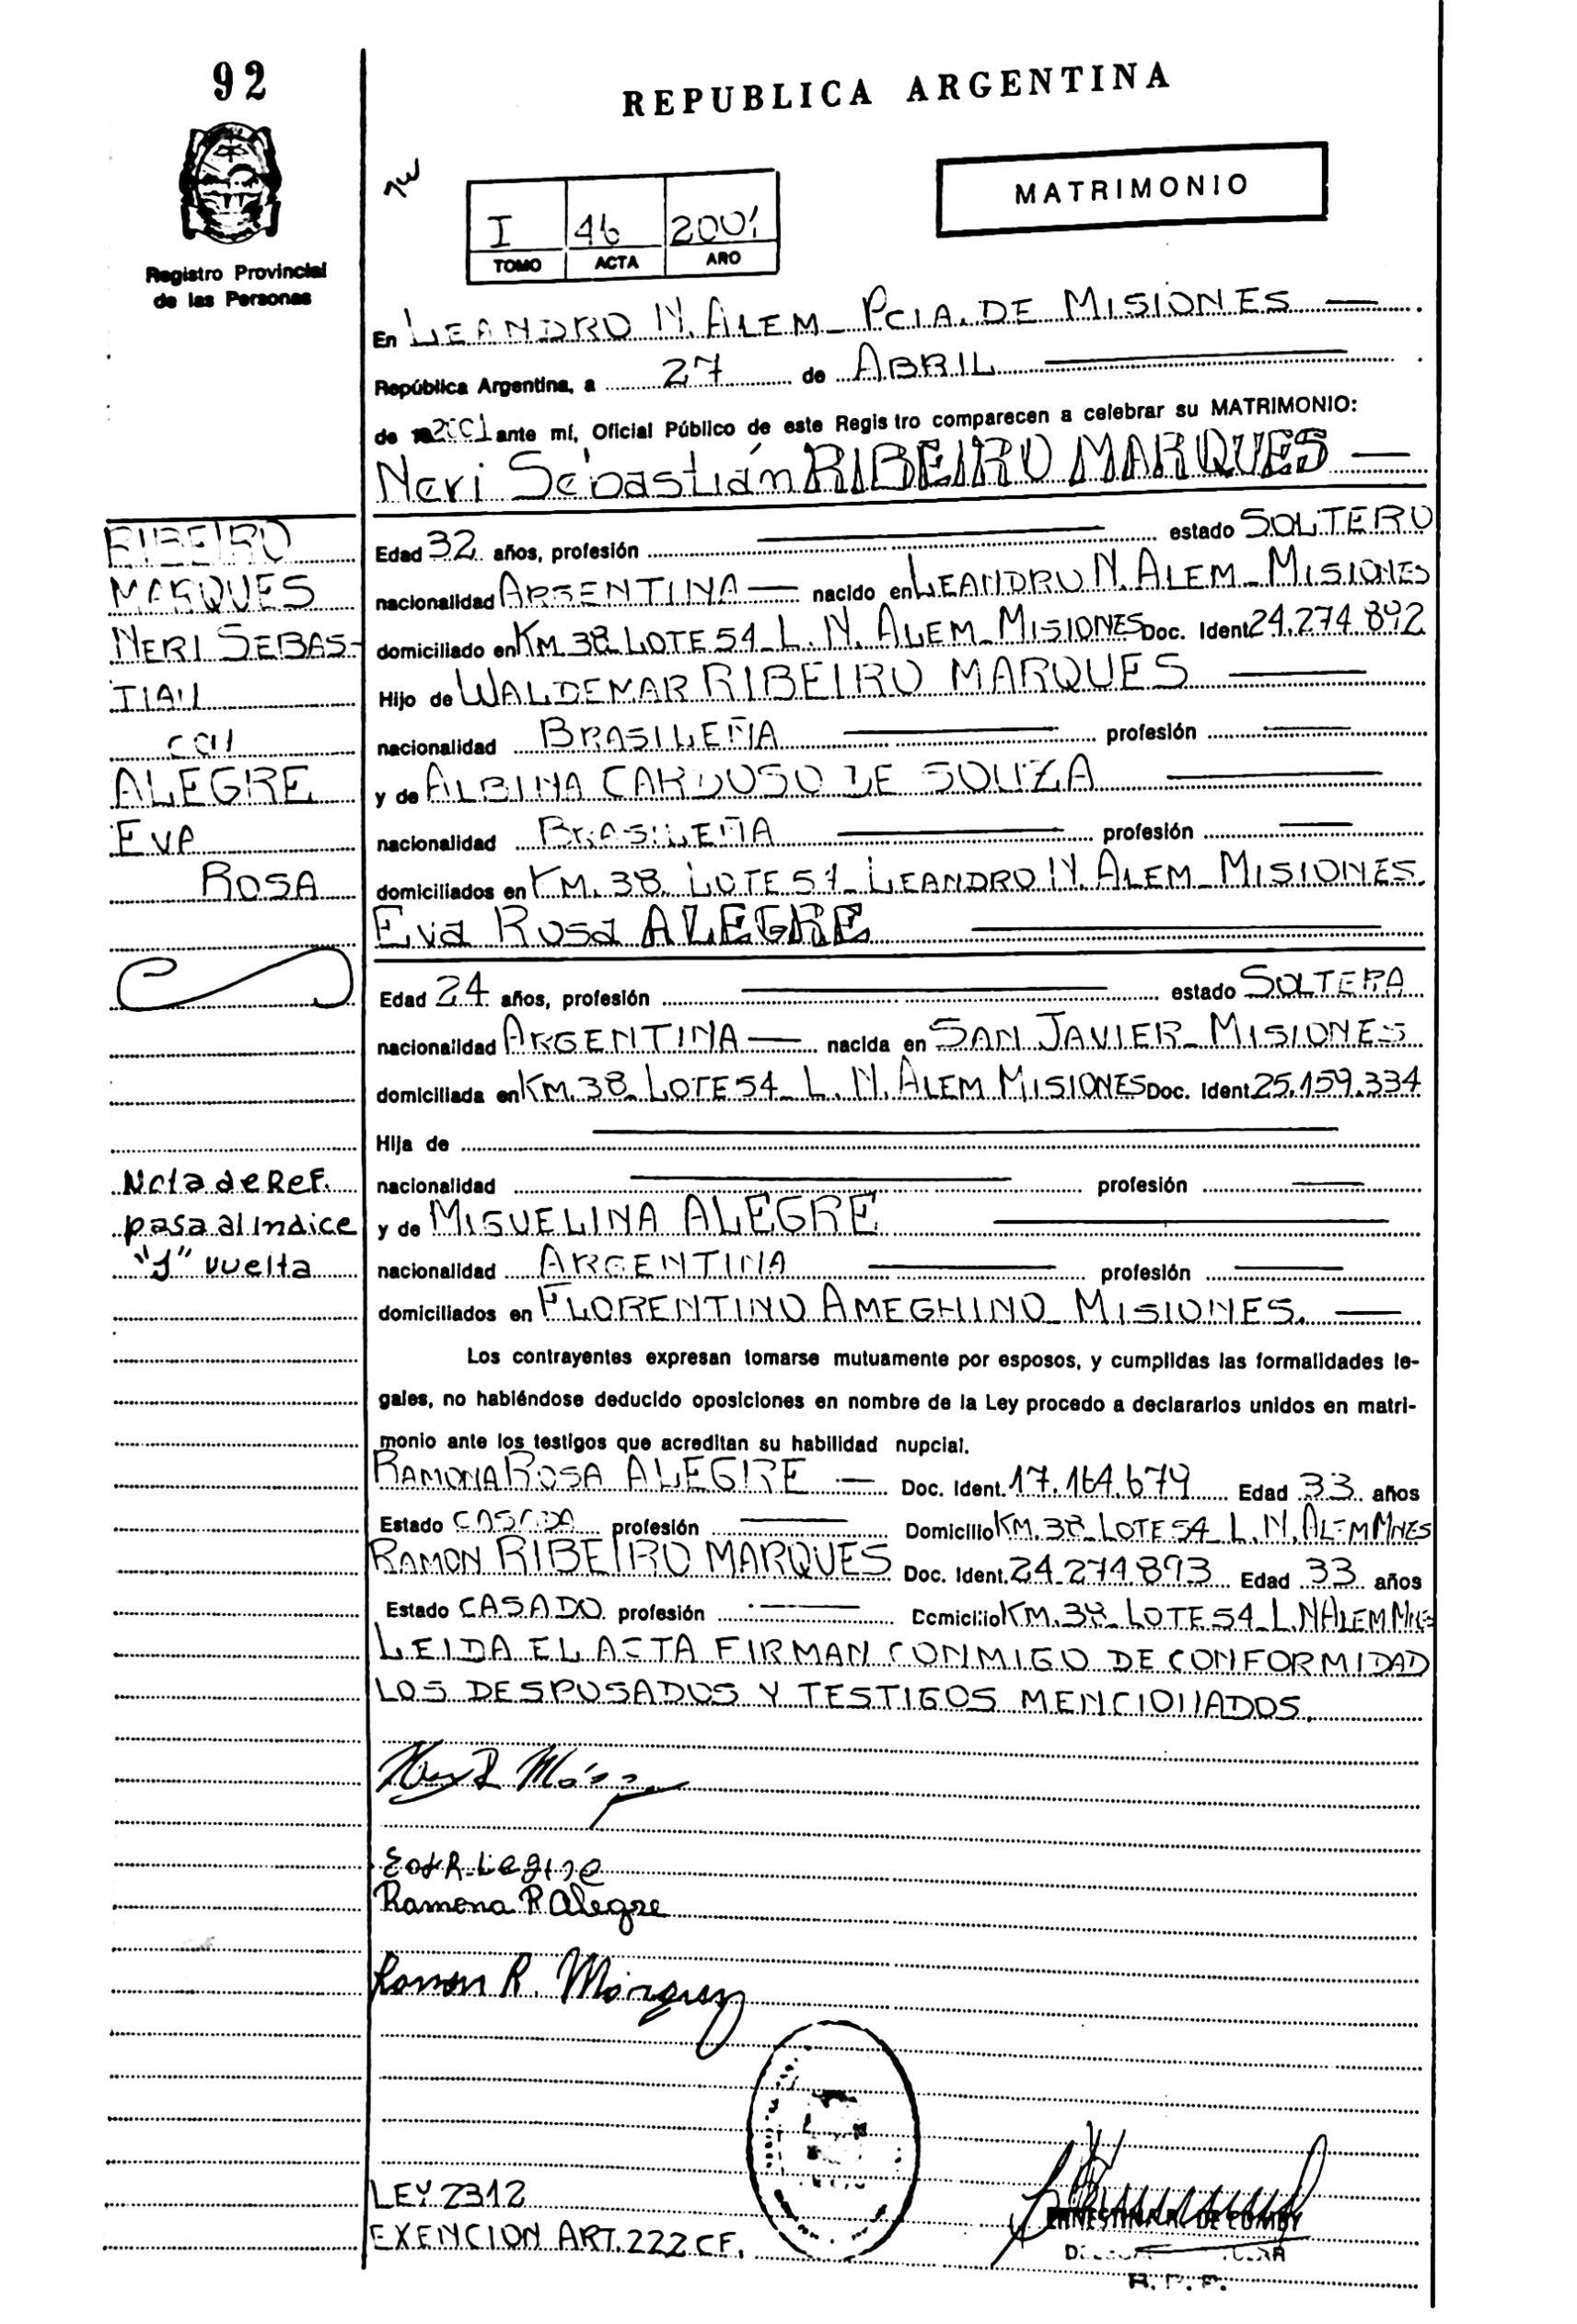 92
REPUBLICA ARGENTINA
MATRIMONIO
I 46 2001
TOMO ACTA AÑO
Registro Provincial
de las Personas
En LEANDRO N. ALEM - PCIA. DE MISIONES
República Argentina, a 27 de ABRIL
de 2001 ante mí, Oficial Público de este Registro comparecen a celebrar su MATRIMONIO:
Neri Sebastián RIBEIRO MARQUES
RIBEIRO
MARQUES
NERI SEBAS-
TIAN
CON
ALEGRE
EVA
ROSA
Edad 32 años, profesión estado SOLTERO
nacionalidad ARGENTINA nacido en LEANDRO N. ALEM - MISIONES
domiciliado en KM. 38 - LOTE 54 - L. N. ALEM - MISIONES Doc. Ident. 24.274.892
Hijo de WALDEMAR RIBEIRO MARQUES
nacionalidad BRASILEÑA profesión
y de ALBINA CARDOSO DE SOUZA
nacionalidad BRASILEÑA profesión
domiciliados en KM. 38 - LOTE 54 - LEANDRO N. ALEM - MISIONES.
Eva Rosa ALEGRE
Edad 24 años, profesión estado SOLTERA
nacionalidad ARGENTINA nacida en SAN JAVIER - MISIONES
domiciliada en KM. 38 - LOTE 54 - L. N. ALEM MISIONES Doc. Ident. 25.159.334
Hija de
nacionalidad profesión
y de MIGUELINA ALEGRE
nacionalidad ARGENTINA profesión
domiciliados en FLORENTINO AMEGHINO - MISIONES.
Nota de Ref.
pasa al indice
"J" vuelta
Los contrayentes expresan tomarse mutuamente por esposos, y cumplidas las formalidades le-
gales, no habiéndose deducido oposiciones en nombre de la Ley procedo a declararlos unidos en matri-
monio ante los testigos que acreditan su habilidad nupcial.
RAMONA ROSA ALEGRE Doc. Ident. 17.164.679 Edad 33 años
Estado CASADA profesión Domicilio KM. 38 - LOTE 54 - L. N. ALEM MNES
RAMON RIBEIRO MARQUES Doc. Ident. 24.274.893 Edad 33 años
Estado CASADO profesión Domicilio KM. 38 - LOTE 54 - L. N ALEM MNES
LEIDA EL ACTA FIRMAN CONMIGO DE CONFORMIDAD
LOS DESPOSADOS Y TESTIGOS MENCIONADOS.
Ramona R Alegre
Ramon R. Márquez
LEY 2312
EXENCION ART. 222 CF.
R. P. P.